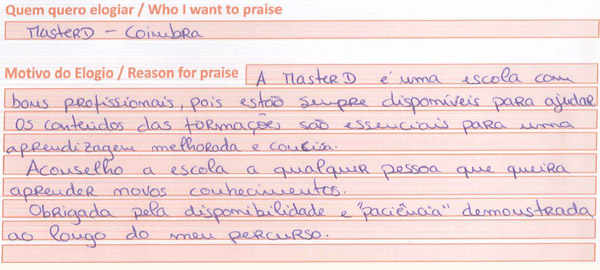 Quem quero elogiar / Who I want to praise
MasterD - Coimbra
Motivo do Elogio / Reason for praise A MasterD é uma escola com
bons profissionais, pois estão sempre disponíveis para ajudar
Os conteúdos das formações são essenciais para uma
aprendizagem melhorada e concisa.
Aconselho a escola a qualquer pessoa que queira
aprender novos conhecimentos.
Obrigada pela disponibilidade e "paciência" demonstrada
ao longo do meu percurso.